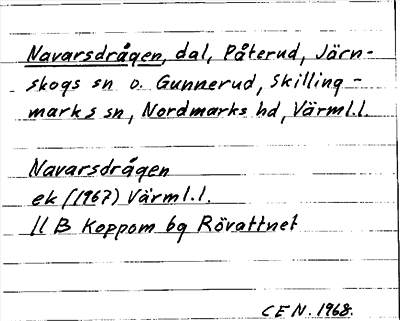 Navarsdrågen, dal, Påterud, Järn-
skogs sn o. Gunnerud, Skilling-
marks sn, Nordmarks hd, Värml.l.
Navarsdrågen
ek (1967) Värml.l.
11 B Koppom bg Rövattnet
CEN. 1968.